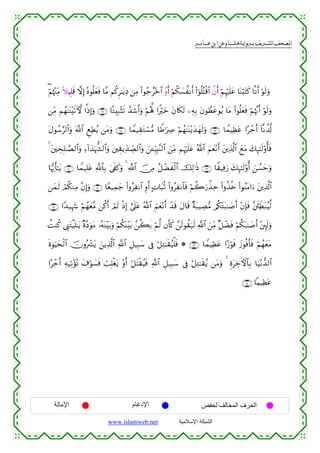 المصحف الشريف برواية هشام عن ابن عامر
وَلَوْ أَنَّا كَتَبْنَا عَلَيْهِمْ أَنُ ٱقْتُلُوٓا۟ أَنفُسَكُمْ أَوُ ٱخْرُجُوا۟ مِن دِيَـٰرِكُم مَّا فَعَلُوهُ إِلَّا قَلِيلًا مِّنْهُمْ ۖ
وَلَوْ أَنَّهُمْ فَعَلُوا۟ مَا يُوعَظُونَ بِهِۦ لَكَانَ خَيْرًا لَّهُمْ وَأَشَدَّ تَثْبِيتًا ۝ وَإِذًا لَّءَاتَيْنَـٰهُم مِّن
لَّدُنَّآ أَجْرًا عَظِيمًا ۝ وَلَهَدَيْنَـٰهُمْ صِرَٰطًا مُّسْتَقِيمًا ۝ وَمَن يُطِعِ ٱللَّهَ وَٱلرَّسُولَ
فَأُو۟لَـٰٓئِكَ مَعَ ٱلَّذِينَ أَنْعَمَ ٱللَّهُ عَلَيْهِم مِّنَ ٱلنَّبِيِّـۧنَ وَٱلصِّدِّيقِينَ وَٱلشُّهَدَآءِ وَٱلصَّـٰلِحِينَ ۚ
وَحَسُنَ أُو۟لَـٰٓئِكَ رَفِيقًا ۝ ذَٰلِكَ ٱلْفَضْلُ مِنَ ٱللَّهِ ۚ وَكَفَىٰ بِٱللَّهِ عَلِيمًا ۝ يَـٰٓأَيُّهَا
ٱلَّذِينَ ءَامَنُوا۟ خُذُوا۟ حِذْرَكُمْ فَٱنفِرُوا۟ ثُبَاتٍ أَوِ ٱنفِرُوا۟ جَمِيعًا ۝ وَإِنَّ مِنكُمْ لَمَن
لَّيُبَطِّئَنَّ فَإِنْ أَصَـٰبَتْكُم مُّصِيبَةٌ قَالَ قَدْ أَنْعَمَ ٱللَّهُ عَلَىَّ إِذْ لَمْ أَكُن مَّعَهُمْ شَهِيدًا ۝
وَلَئِنْ أَصَـٰبَكُمْ فَضْلٌ مِّنَ ٱللَّهِ لَيَقُولَنَّ كَأَن لَّمْ يَكُنۢ بَيْنَكُمْ وَبَيْنَهُۥ مَوَدَّةٌ يَـٰلَيْتَنِى كُنتُ
مَعَهُمْ فَأَفُوزَ فَوْزًا عَظِيمًا ۝ ۞ فَلْيُقَـٰتِلْ فِى سَبِيلِ ٱللَّهِ ٱلَّذِينَ يَشْرُونَ ٱلْحَيَوٰةَ
ٱلدُّنْيَا بِٱلْـَٔاخِرَةِ ۚ وَمَن يُقَـٰتِلْ فِى سَبِيلِ ٱللَّهِ فَيُقْتَلْ أَوْ يَغْلِب فَّسَوْفَ نُؤْتِيهِ أَجْرًا
عَظِيمًا ۝
الحرف المخالف لحفص الإدغام الإمالة
الشبكة الإسلامية www.islamweb.net